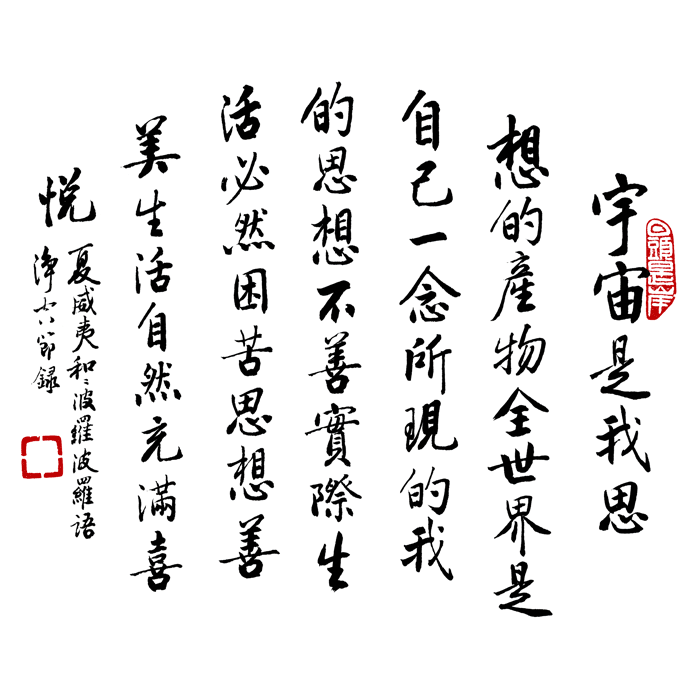 回頭是岸
宇宙是我思
想的產物全世界是
自己一念所現的我
的思想不善實際生
活必然困苦思想善
美生活自然充滿喜
悅
夏威夷和〻波羅波羅語
淨節錄